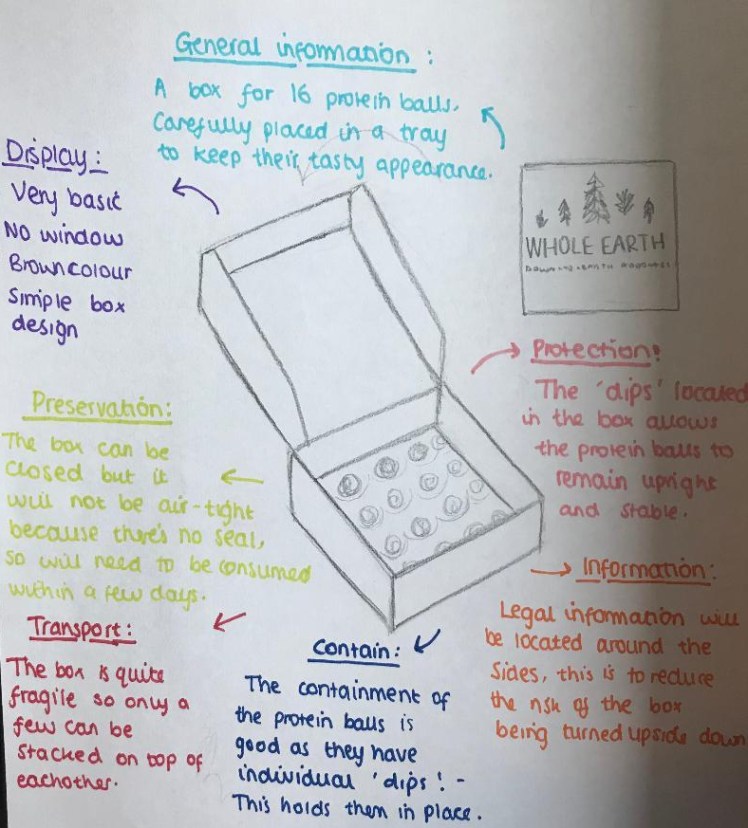 General information :
A box for 16 protein balls.
Carefully placed in a tray
to keep their tasty appearance.
Display :
Very basic
No window
Brown colour
Simple box
design
WHOLE EARTH
Protection!
The 'dips' located
in the box allows
the protein balls to
remain upright
and stable.
Preservation:
The box can be
closed but it
will not be air-tight
because there's no seal,
so will need to be consumed
within a few days.
Information:
Legal information will
be located around the
sides, this is to reduce
the risk of the box
being turned upside down
Transport:
The box is quite
fragile so only a
few can be
stacked on top of
eachother.
Contain:
The containment of
the protein balls is
good as they have
individual 'dips'! -
This holds them in place.